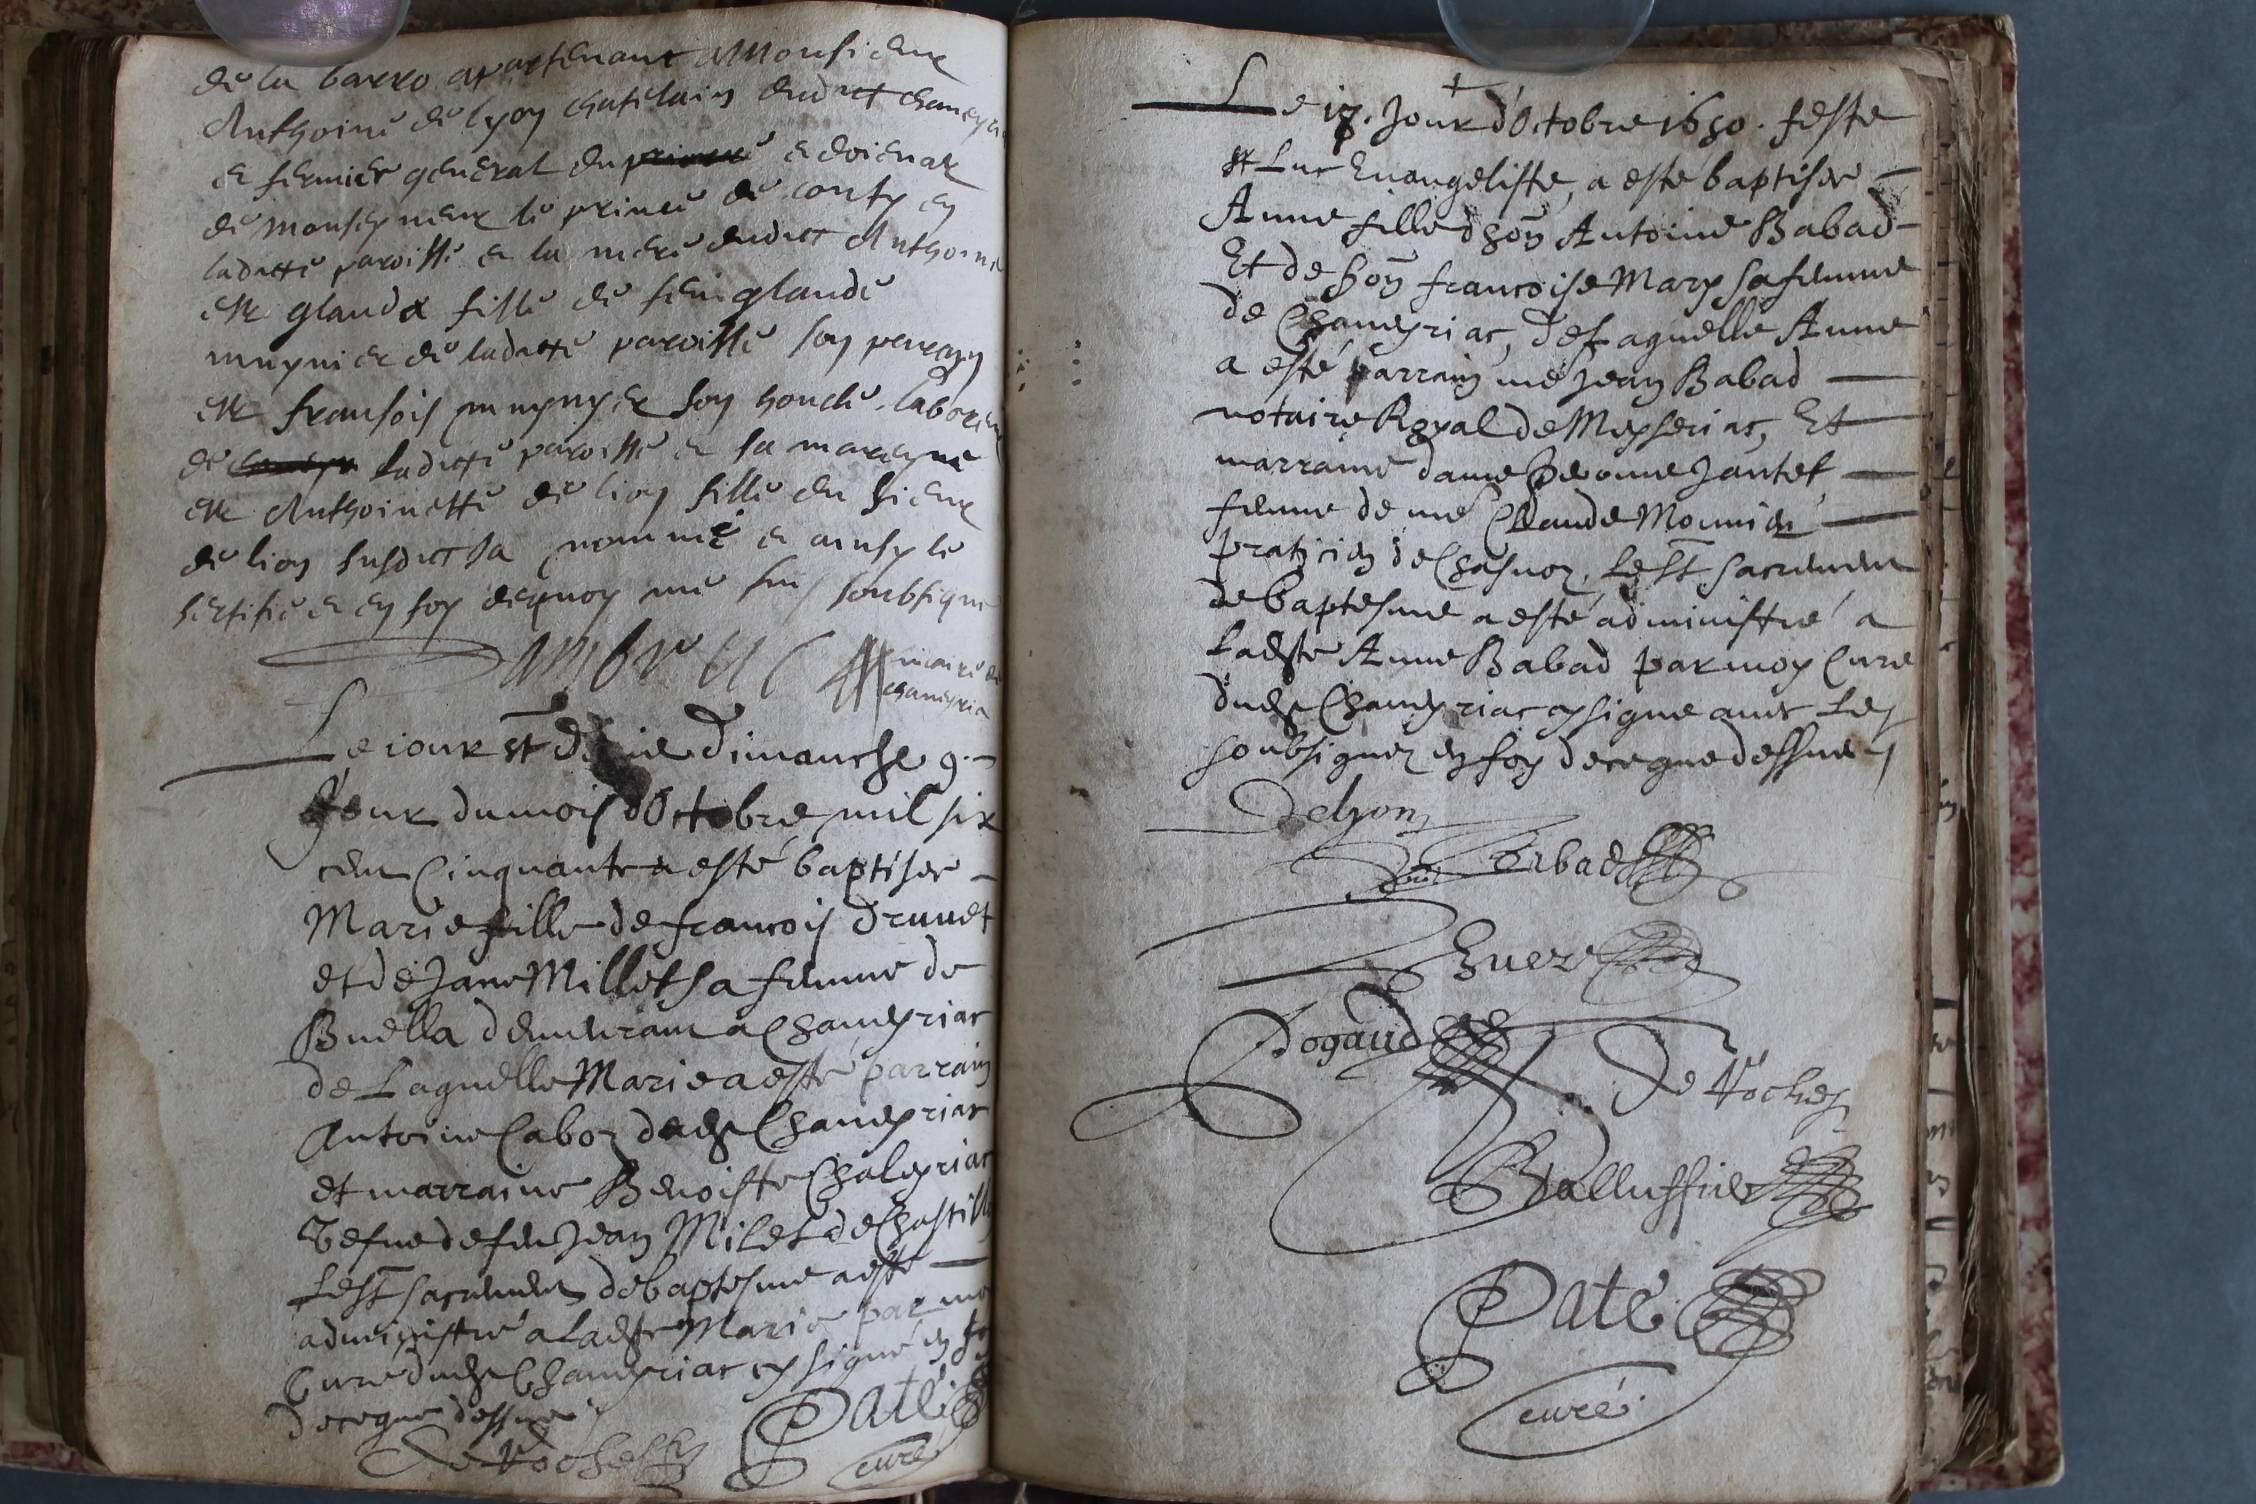 de la barro apartenant a Monsieur
Anthoine de lyon chatelain dudict
et fermier general du et doienat
de monseyneur le prince de conty en
ladicte paroisse et la mere dudict Anthoine
est glauda fille de feu glaude
mugnier de ladicte paroisse son parrayn
est fransois mugnyer son honcle
de ladicte paroisse et sa marayne
est Anthoinette de lion fille du sieur
de lion susdict la nommé et ainsy le
sertifie et en foy dequoy me suis soubsigne
vicaire de
chaneyria
Le iour st Denie Dimanche 9.
Jour du mois dOctobre mil six
cent Cinquante a esté baptisee
Marie fille de francois Druuet
et de Jane Millet sa femme de
Buella demeurant a Chaneyriac
de Laquelle Marie a esté parrain
Antoine Caboz dudt Chaneyriac
et marraine Benoiste Chaleyriat
Vefue de feu Jean Milet de
Lest sacrement de baptesme a esté
administré a Ladte Marie par moy
Curé dudt Chaneyriac et signé en foy
de ce que dessus
De Roches Paté
curé
Le 18. Jour d'Octobre 1650. feste
st Luc Euangeliste, a esté baptisee
Anne fille dhon Antoine Babad
Et de hon francoise Mary sa femme
de Chaneyriac, de Laquelle Anne
a esté parrain me Jean Babad
notaire Royal de Meyseriac, Et
marraine dame Jantet
femme de me Claude Mounier
praticien de Lest sacrement
de baptesme a esté administré a
Ladte Anne Babad par moy Curé
dudt Chaneyriac et signe auec Les
soubsignez en foy de ce que dessus
Delyon
Babad
Dogaud
De Roches
Balluffier
Paté
curé